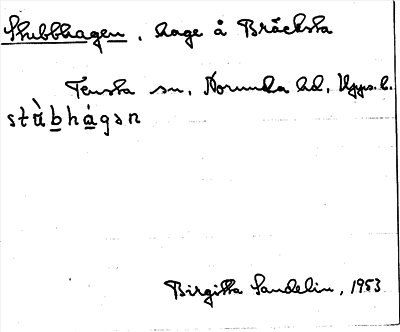 Stubbhagen, hage å Bräcksta
Tensta sn, Norunda hd, Upps. l.
stὰb̲há̲gən
Birgitta Sandelin, 1953